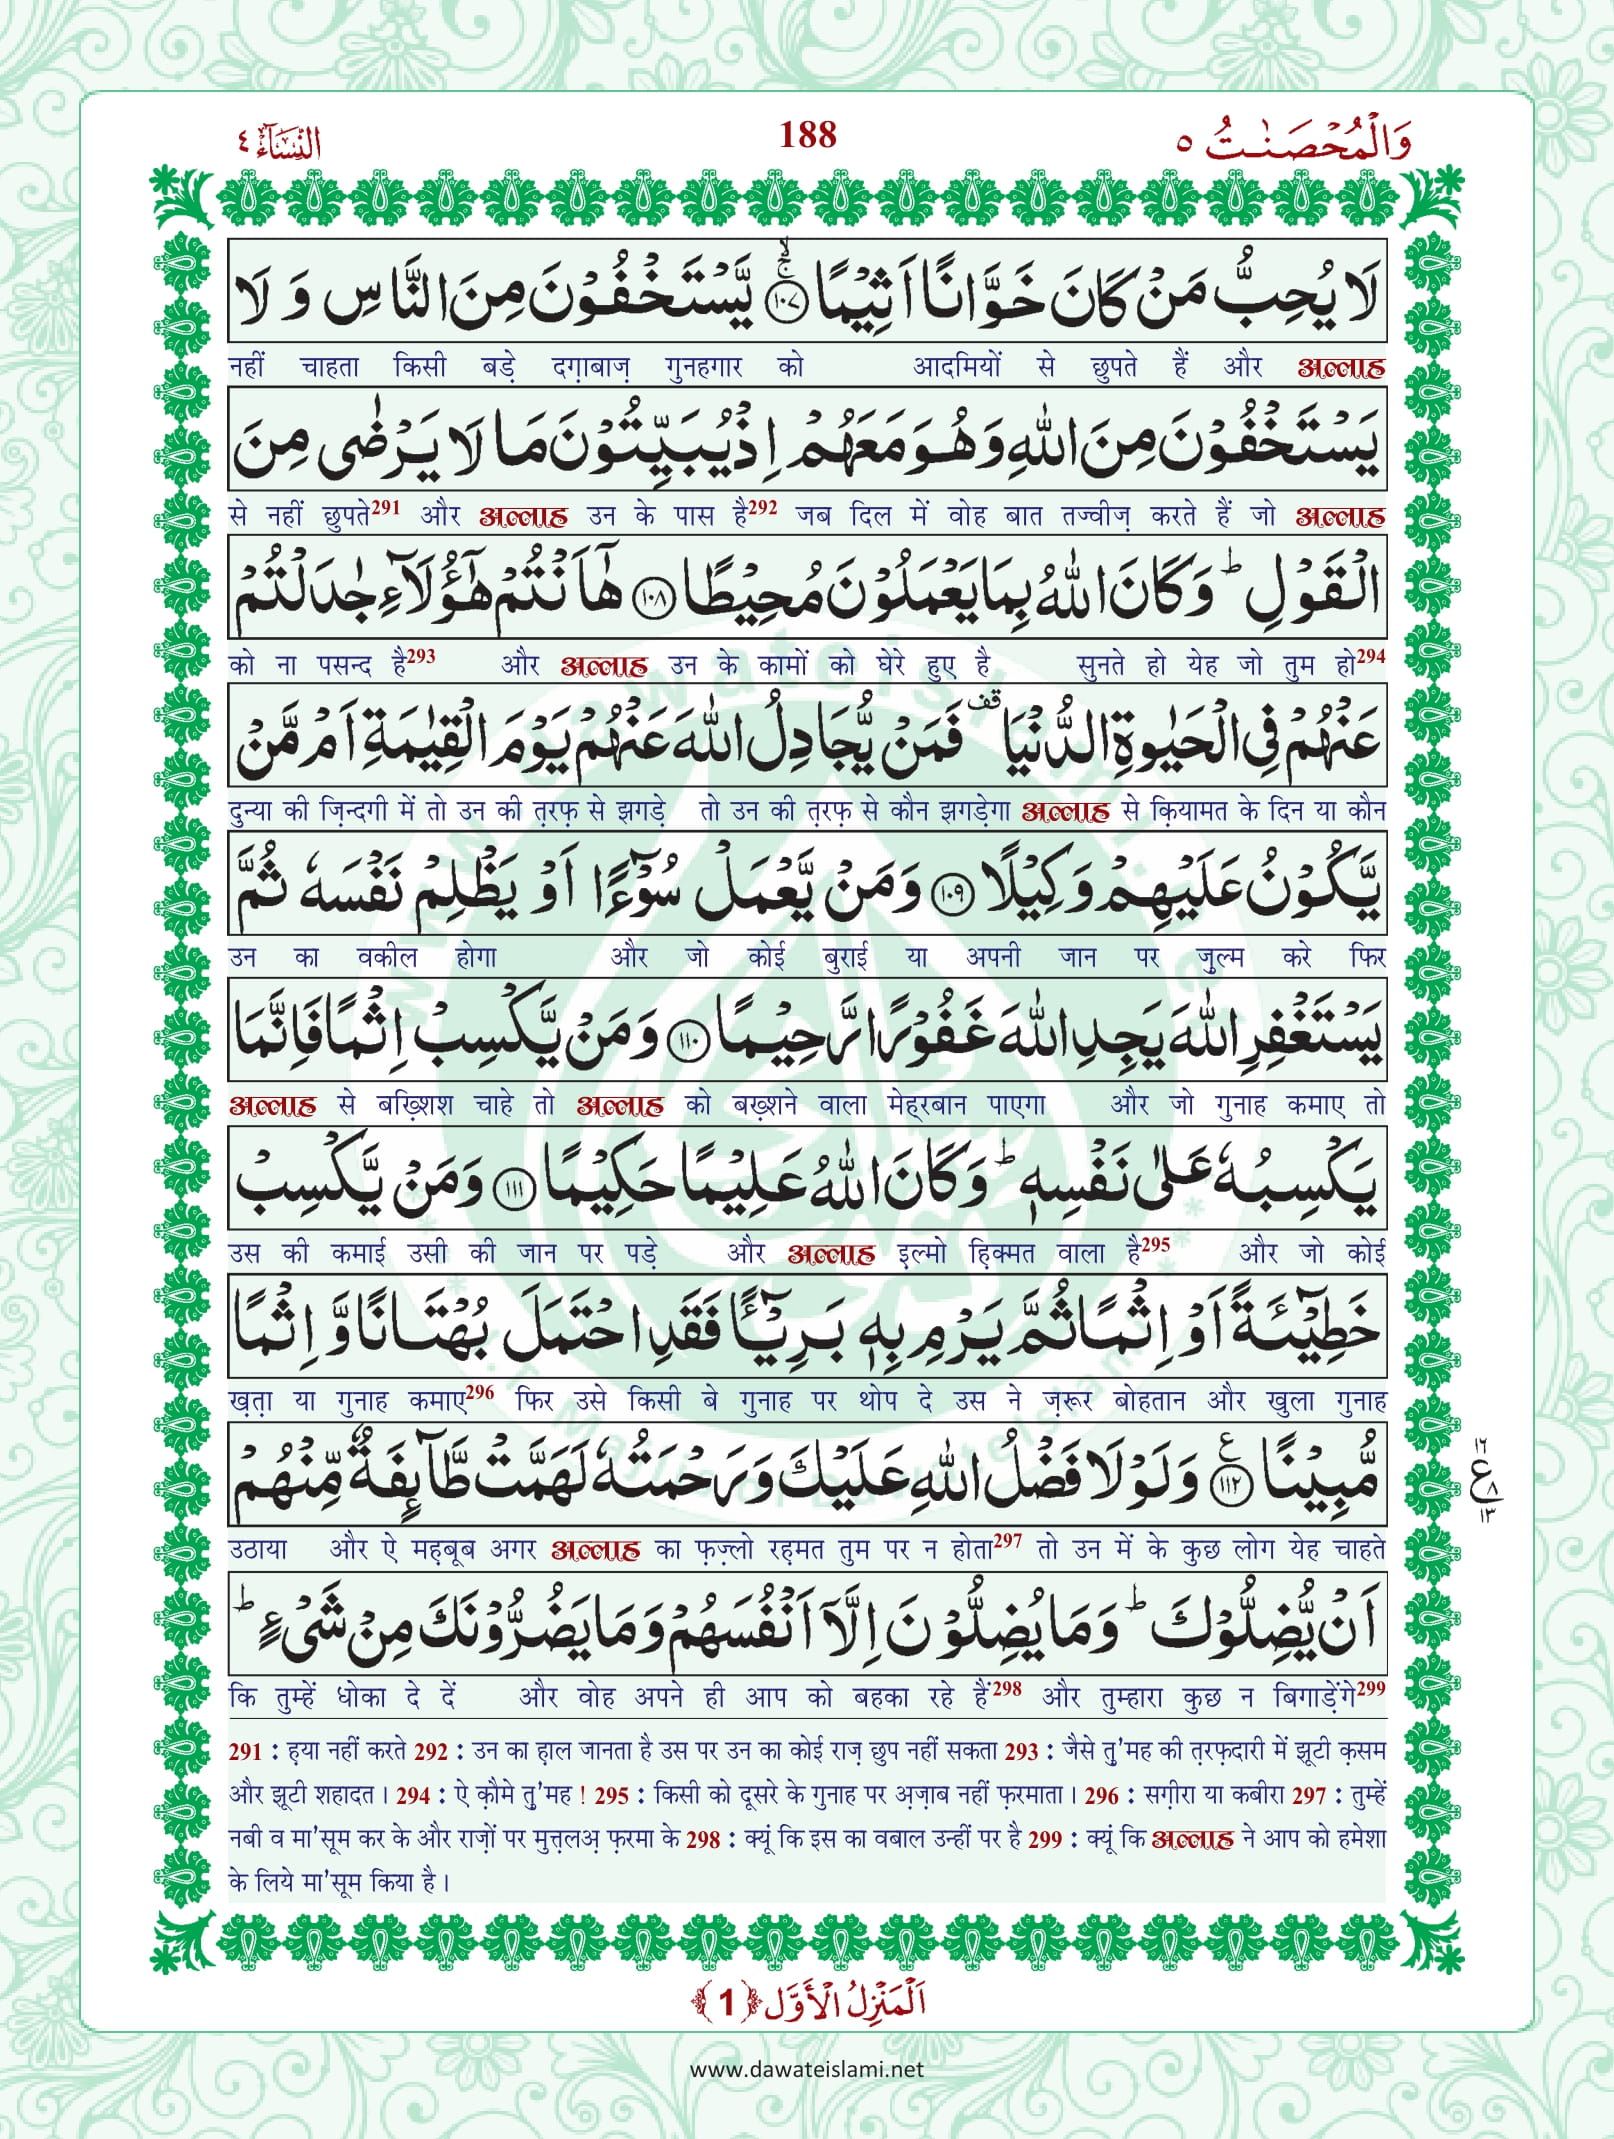 اَلنِّسَآء ٤
188
وَالْمُحْصَنٰتُ ٥
لَا یُحِبُّ مَنْ كَانَ خَوَّانًا اَثِیْمًا ﴿۱۰۷﴾ یَّسْتَخْفُوْنَ مِنَ النَّاسِ وَ لَا
नहीं चाहता किसी बड़े दग़ाबाज़ गुनहगार को आदमियों से छुपते हैं और अल्लाह
یَسْتَخْفُوْنَ مِنَ اللّٰهِ وَ هُوَ مَعَهُمْ اِذْ یُبَیِّتُوْنَ مَا لَا یَرْضٰى مِنَ
से नहीं छुपते291 और अल्लाह उन के पास है292 जब दिल में वोह बात तज्वीज़ करते हैं जो अल्लाह
الْقَوْلِ ؕ وَ كَانَ اللّٰهُ بِمَا یَعْمَلُوْنَ مُحِیْطًا ﴿۱۰۸﴾ هٰۤاَنْتُمْ هٰۤؤُلَآءِ جٰدَلْتُمْ
को ना पसन्द है293 और अल्लाह उन के कामों को घेरे हुए है सुनते हो येह जो तुम हो294
عَنْهُمْ فِی الْحَیٰوةِ الدُّنْیَا ۫ فَمَنْ یُّجَادِلُ اللّٰهَ عَنْهُمْ یَوْمَ الْقِیٰمَةِ اَمْ مَّنْ
दुन्या की ज़िन्दगी में तो उन की त़रफ़ से झगड़े तो उन की त़रफ़ से कौन झगड़ेगा अल्लाह से क़ियामत के दिन या कौन
یَّكُوْنُ عَلَیْهِمْ وَكِیْلًا ﴿۱۰۹﴾ وَ مَنْ یَّعْمَلْ سُوْٓءًا اَوْ یَظْلِمْ نَفْسَهٗ ثُمَّ
उन का वकील होगा और जो कोई बुराई या अपनी जान पर ज़ुल्म करे फिर
یَسْتَغْفِرِ اللّٰهَ یَجِدِ اللّٰهَ غَفُوْرًا رَّحِیْمًا ﴿۱۱۰﴾ وَ مَنْ یَّكْسِبْ اِثْمًا فَاِنَّمَا
अल्लाह से बख़्शिश चाहे तो अल्लाह को बख़्शने वाला मेह्‌रबान पाएगा और जो गुनाह कमाए तो
یَكْسِبُهٗ عَلٰى نَفْسِهٖ ؕ وَ كَانَ اللّٰهُ عَلِیْمًا حَكِیْمًا ﴿۱۱۱﴾ وَ مَنْ یَّكْسِبْ
उस की कमाई उसी की जान पर पड़े और अल्लाह इल्मो ह़िक्मत वाला है295 और जो कोई
خَطِیْٓــٴَـةً اَوْ اِثْمًا ثُمَّ یَرْمِ بِهٖ بَرِیْٓــٴًـا فَقَدِ احْتَمَلَ بُهْتَانًا وَّ اِثْمًا
ख़त़ा या गुनाह कमाए296 फिर उसे किसी बे गुनाह पर थोप दे उस ने ज़रूर बोहतान और खुला गुनाह
مُّبِیْنًا ﴿۱۱۲﴾ وَ لَوْ لَا فَضْلُ اللّٰهِ عَلَیْكَ وَ رَحْمَتُهٗ لَهَمَّتْ طَّآىٕفَةٌ مِّنْهُمْ
١٦ ع ٨ ١٣
उठाया और ऐ मह़बूब अगर अल्लाह का फ़ज़्लो रह़मत तुम पर न होता297 तो उन में के कुछ लोग येह चाहते
اَنْ یُّضِلُّوْكَ ؕ وَ مَا یُضِلُّوْنَ اِلَّاۤ اَنْفُسَهُمْ وَ مَا یَضُرُّوْنَكَ مِنْ شَیْءٍ ؕ
कि तुम्हें धोका दे दें और वोह अपने ही आप को बहका रहे हैं298 और तुम्हारा कुछ न बिगाड़ेंगे299
291 : ह़या नहीं करते 292 : उन का ह़ाल जानता है उस पर उन का कोई राज़ छुप नहीं सकता 293 : जैसे तु़'मह की त़रफ़दारी में झूटी क़सम
और झूटी शहादत। 294 : ऐ क़ौमे तु़'मह ! 295 : किसी को दूसरे के गुनाह पर अ़ज़ाब नहीं फ़रमाता। 296 : सग़ीरा या कबीरा 297 : तुम्हें
नबी व मा'सूम कर के और राज़ों पर मुत़्त़लअ़ फ़रमा के 298 : क्यूं कि इस का वबाल उन्हीं पर है 299 : क्यूं कि अल्लाह ने आप को हमेशा
के लिये मा'सूम किया है।
اَلْمَنْزِلُ الْاَوَّل ﴿1﴾
www.dawateislami.net